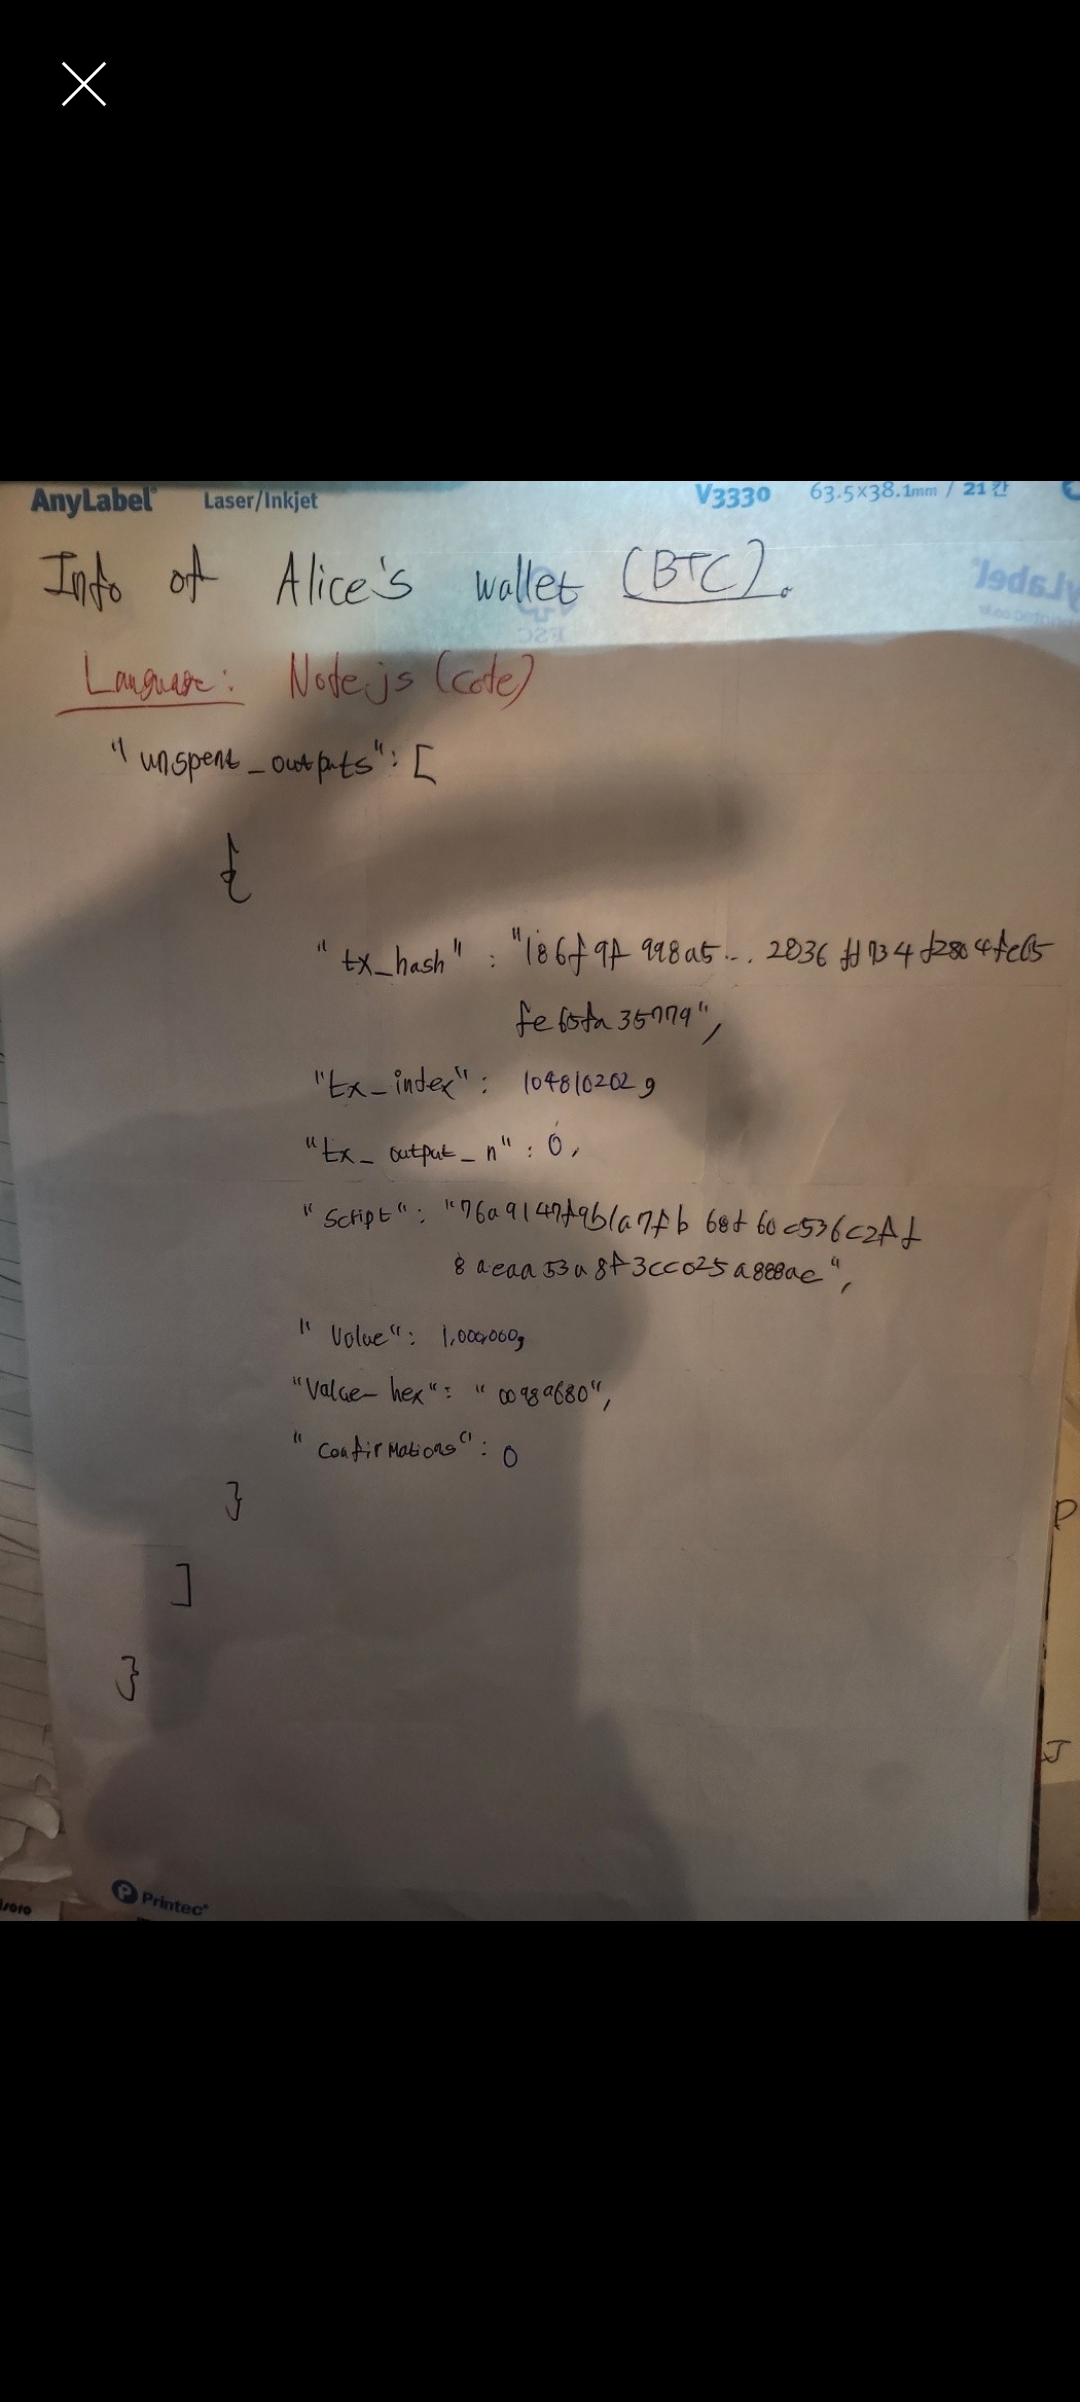 AnyLabel Laser/Inkjet V3330 63.5x38.1mm / 21칸
Info of Alice's wallet (BTC).
Language: Node.js (code)
"unspent_outputs": [
{
"tx_hash": "186f9f998a5... 2836fd734f2804fe65
fe65fa35779",
"tx_index": 104810202,
"tx_output_n": 0,
"script": "76a9147f9b1a7fb68d60c536c2fd
8aeaa53a8f3cc025a888ac",
"Value": 1,000,000,
"Value_hex": "00989680",
"Confirmations": 0
}
]
}
Printec